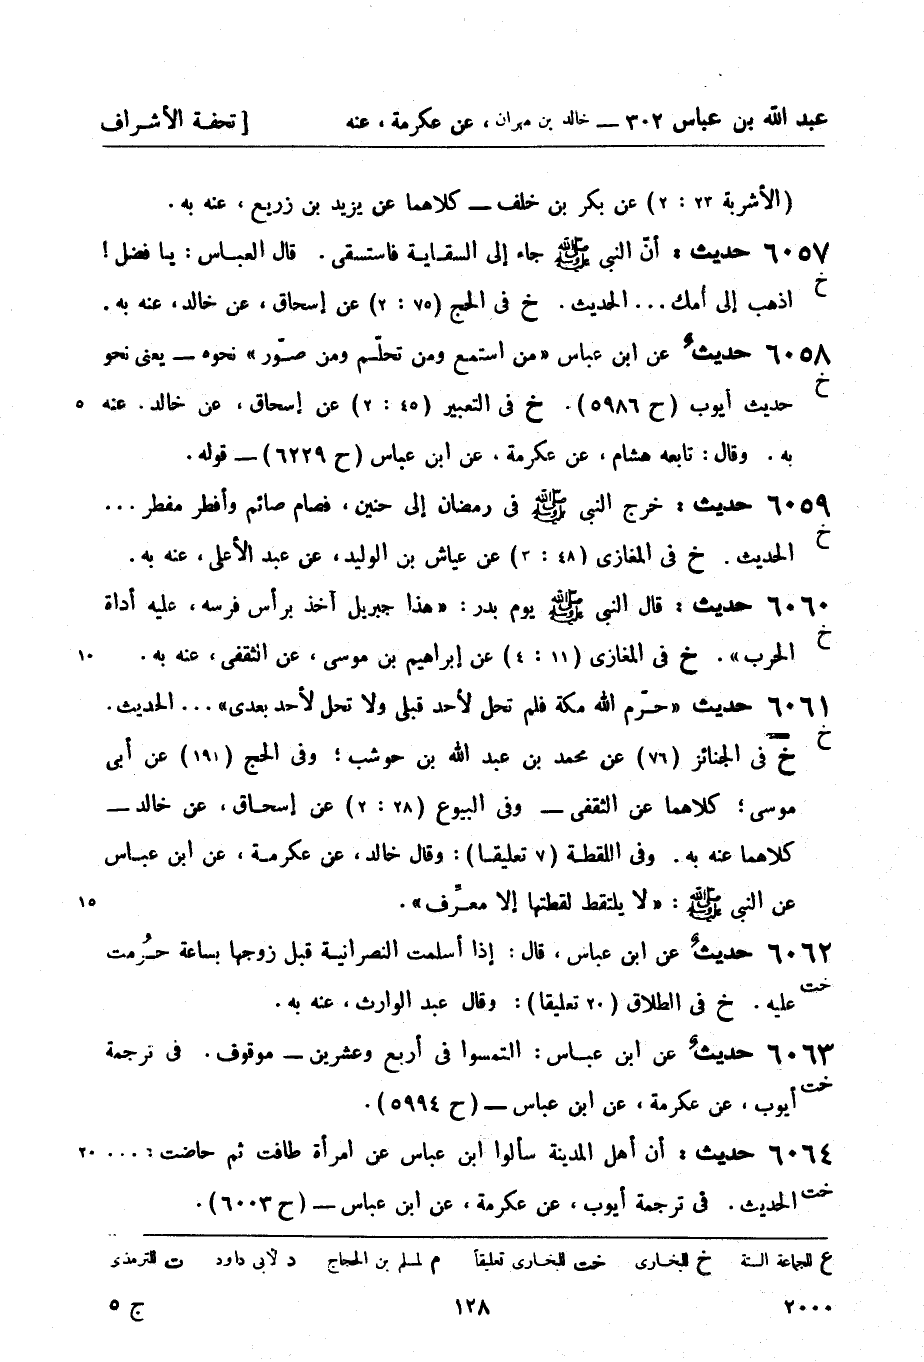 عبد الله بن عباس ٣٠٢ — خالد بن مهران ، عن عكرمة ، عنه [ تحفة الأشراف
(الأشربة ٢٣ : ٢) عن بكر بن خلف — كلاهما عن يزيد بن زريع ، عنه به .
٦٠٥٧ حديث : أنّ النبى ﷺ جاء إلى السقاية فاستسقى . قال العباس : يا فضل !
خ اذهب إلى أمك ... الحديث . خ فى الحج (٧٥ : ٢) عن إسحاق ، عن خالد ، عنه به .
٦٠٥٨ حديثٌ عن ابن عباس «من استمع ومن تحلّم ومن صوّر» نحوه — يعنى نحو
خ حديث أيوب (ح ٥٩٨٦) . خ فى التعبير (٤٥ : ٢) عن إسحاق ، عن خالد . عنه ٥
به . وقال : تابعه هشام ، عن عكرمة ، عن ابن عباس (ح ٦٢٢٩) — قوله .
٦٠٥٩ حديث : خرج النبى ﷺ فى رمضان إلى حنين ، فصام صائم وأفطر مفطر ...
خ الحديث . خ فى المغازى (٤٨ : ٣) عن عياش بن الوليد ، عن عبد الأعلى ، عنه به .
٦٠٦٠ حديث : قال النبى ﷺ يوم بدر : «هذا جبريل آخذ برأس فرسه ، عليه أداة
خ الحرب» . خ فى المغازى (١١ : ٤) عن إبراهيم بن موسى ، عن الثقفى ، عنه به . ١٠
٦٠٦١ حديث «حرّم الله مكة فلم تحل لأحد قبلى ولا تحل لأحد بعدى» ... الحديث .
خ خ فى الجنائز (٧٦) عن محمد بن عبد الله بن حوشب ؛ وفى الحج (١٩١) عن أبى
موسى ؛ كلاهما عن الثقفى — وفى البيوع (٢٨ : ٢) عن إسحاق ، عن خالد —
كلاهما عنه به . وفى اللقطة (٧ تعليقا) : وقال خالد ، عن عكرمة ، عن ابن عباس
عن النبى ﷺ : «لا يلتقط لقطتها إلا معرِّف» . ١٥
٦٠٦٢ حديثٌ عن ابن عباس ، قال : إذا أسلمت النصرانية قبل زوجها بساعة حرُمت
خت عليه . خ فى الطلاق (٢٠ تعليقا) : وقال عبد الوارث ، عنه به .
٦٠٦٣ حديثٌ عن ابن عباس : التمسوا فى أربع وعشرين — موقوف . فى ترجمة
خت أيوب ، عن عكرمة ، عن ابن عباس — (ح ٥٩٩٤) .
٦٠٦٤ حديث : أن أهل المدينة سألوا ابن عباس عن امرأة طافت ثم حاضت : ... ٢٠
خت الحديث . فى ترجمة أيوب ، عن عكرمة ، عن ابن عباس — (ح ٦٠٠٣) .
ع للجماعة الستة خ للبخارى خت للبخارى تعليقاً م لمسلم بن الحجاج د لأبى داود ت للترمذى
٢٠٠٠ ١٢٨ ج ٥